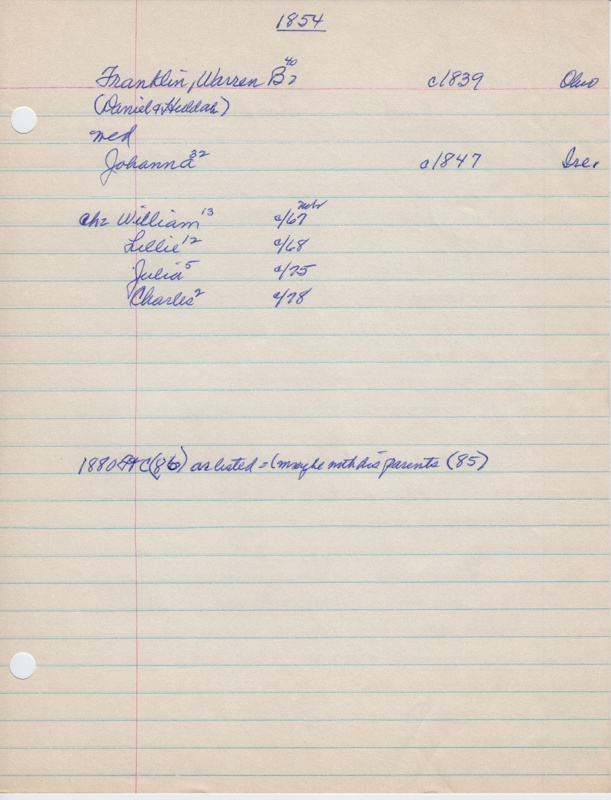 1854
Franklin, Warren B 40 c1839 Ohio
(Daniel & Huldah)
med
Johanna 32 c1847 Ire.
chz William 13 c/67 Nebr
Lillie 12 c/68
Julia 5 c/75
Charles 2 c/78
1880 C(86) as listed = (maybe with his parents (85)